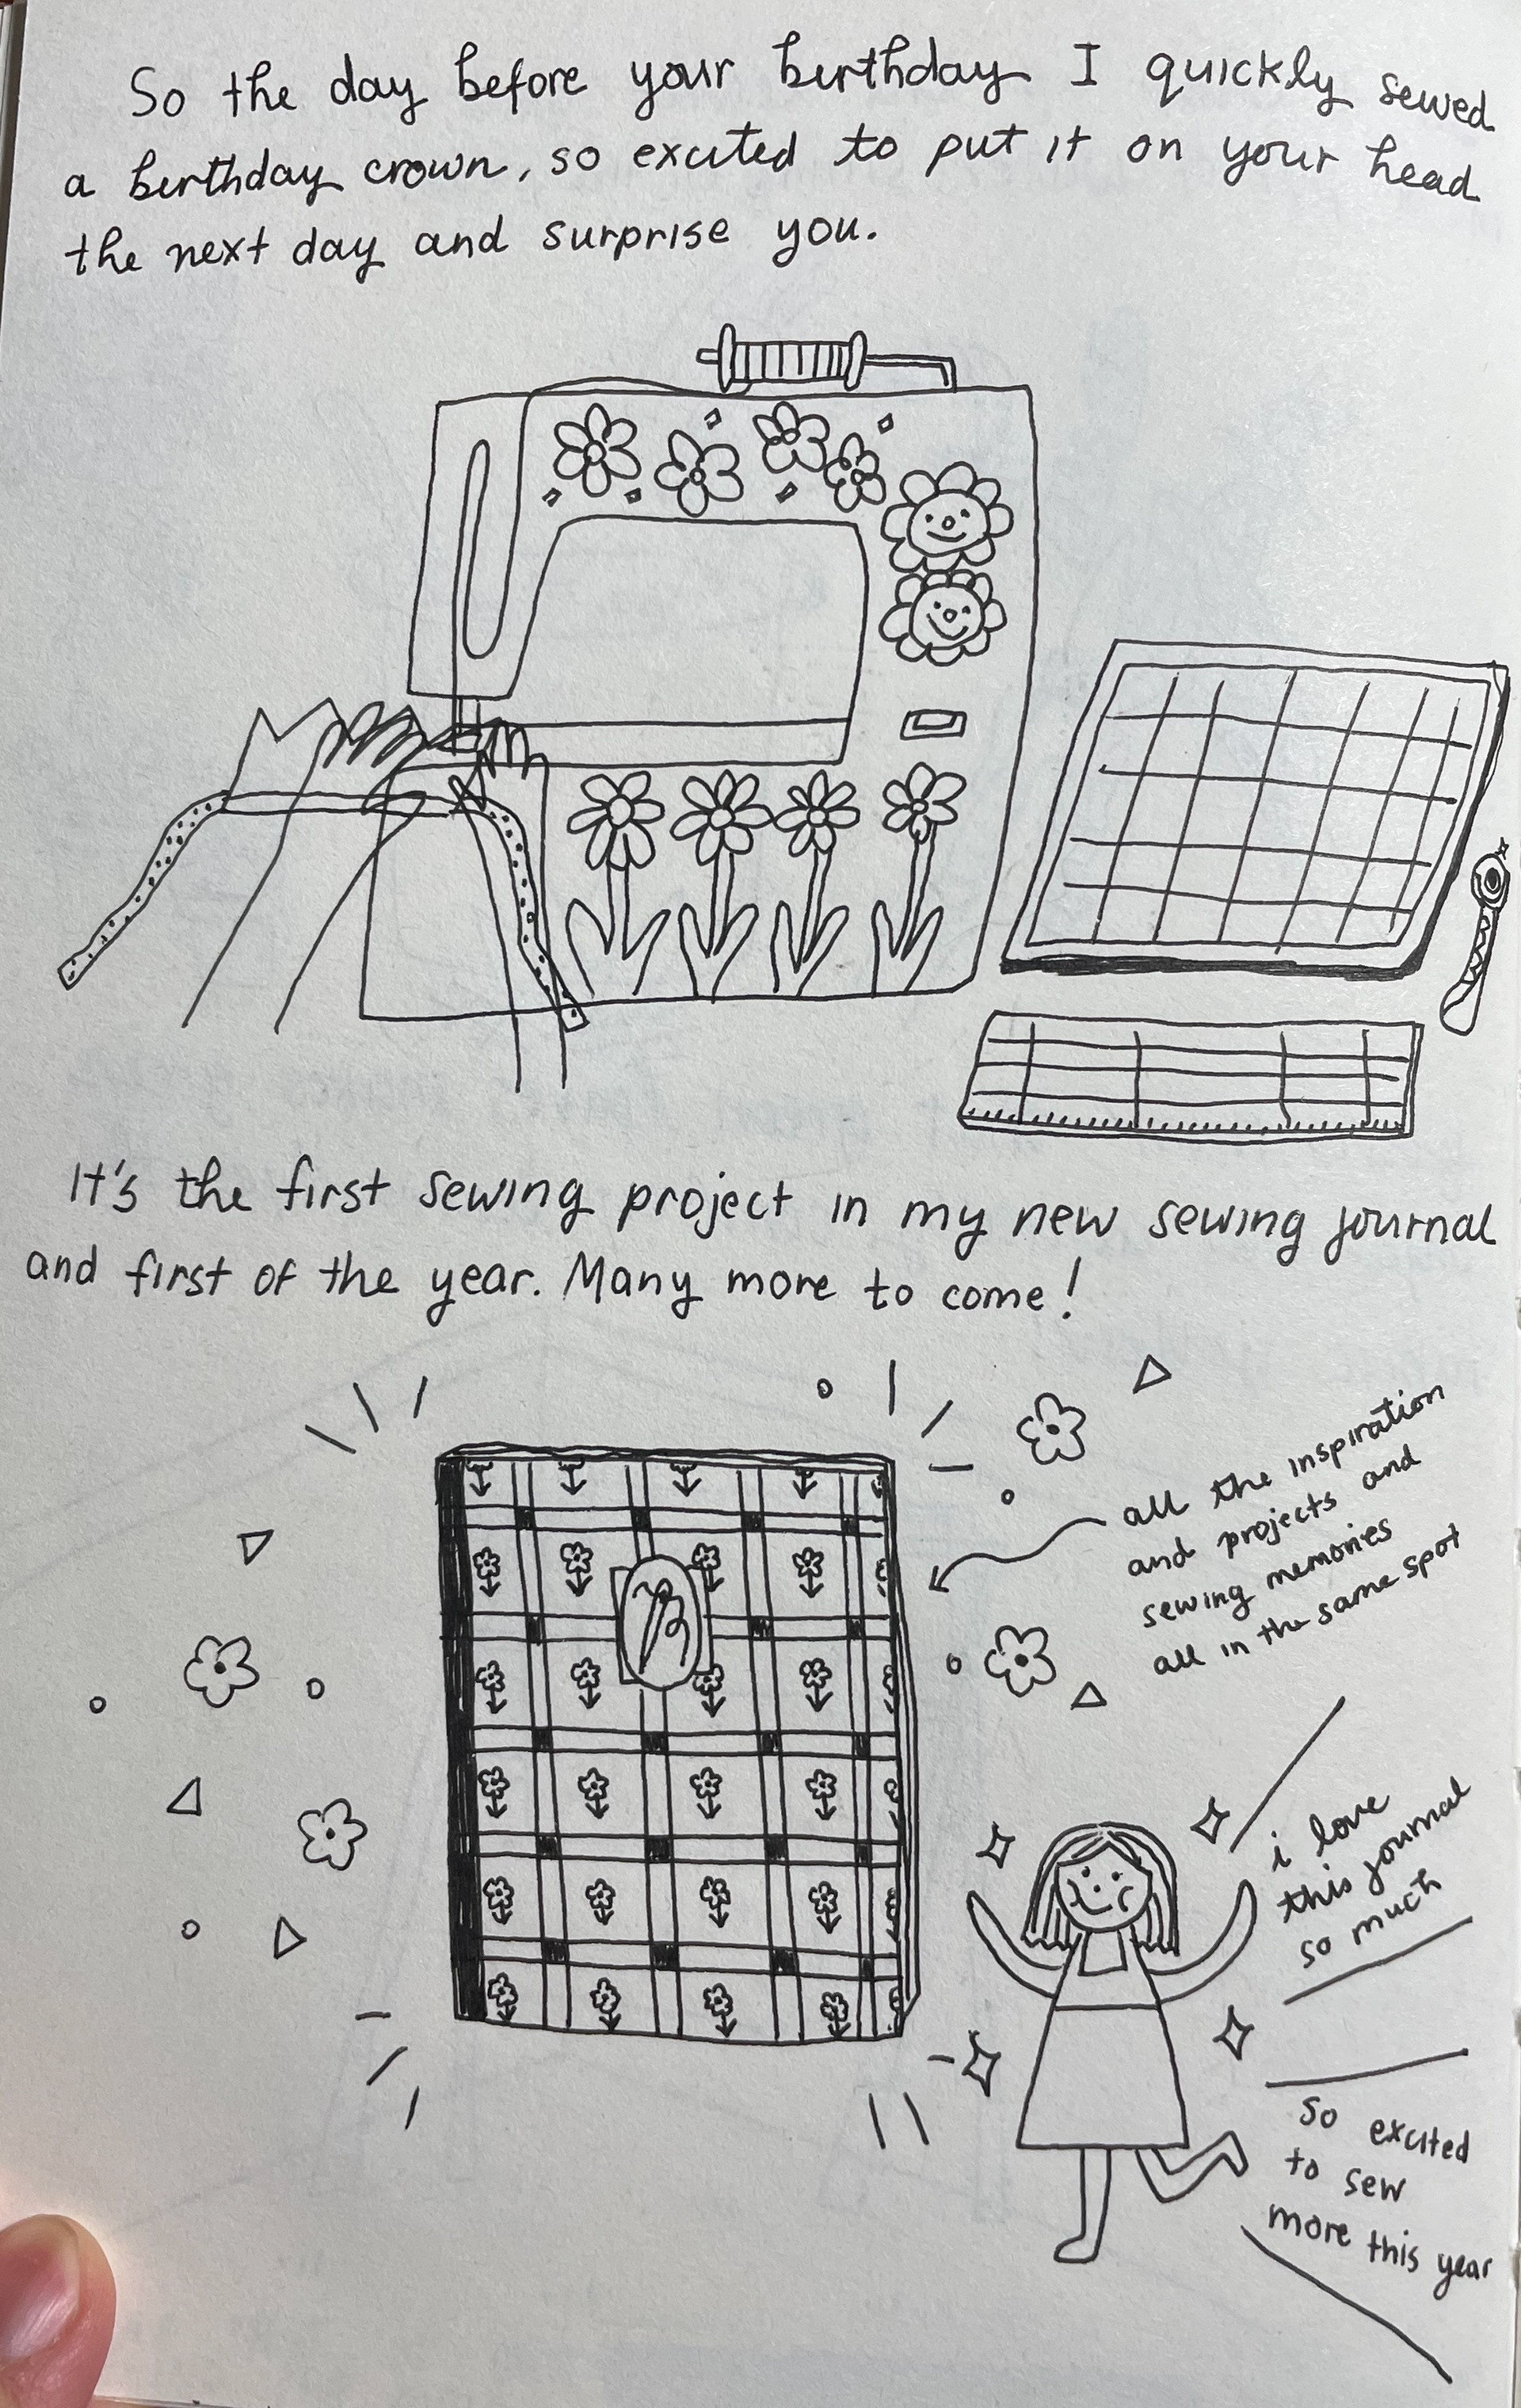 So the day before your birthday I quickly sewed
a birthday crown, so excited to put it on your head
the next day and surprise you.
It's the first sewing project in my new sewing journal
and first of the year. Many more to come!
all the inspiration
and projects and
sewing memories
all in the same spot
i love
this journal
so much
So excited
to sew
more this year